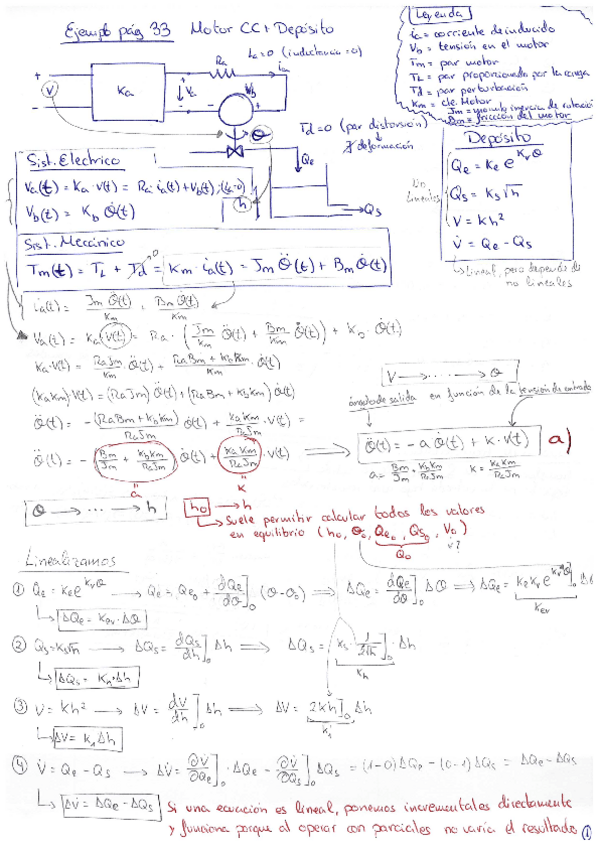 Ejemplo pág 33 Motor CC + Depósito
La=0 (inductancia=0)
Leyenda
ia = corriente de inducido
Vb = tensión en el motor
Tm = par motor
TL = par proporcionado por la carga
Td = par perturbación
Km = cte. Motor
Jm = momento inercia de rotación
Bm = fricción del motor
Ra
ia
+
-
V
Ka
Va
Vb
θ
Td=0 (par distorsión)
deformación
Qe
h
Qs
Sist. Eléctrico
Va(t) = Ka·V(t) = Ra·ia(t)+Vb(t)
Vb(t) = Kb θ̇(t)
Depósito
Qe = Ke e^(Kvθ)
Qs = Ks√h
V = kh²
V̇ = Qe - Qs
No lineales
Lineal, pero depende de no lineales
Sist. Mecánico
Tm(t) = TL + Td = Km·ia(t) = Jm θ̈(t) + Bm θ̇(t)
ia(t) = Jm θ̈(t)/Km + Bm θ̇(t)/Km
Va(t) = Ka V(t) = Ra·(Jm/Km · θ̈(t) + Bm/Km · θ̇(t)) + Kb·θ̇(t)
Ka·V(t) = RaJm/Km · θ̈(t) + (RaBm + KbKm)/Km · θ̇(t)
(KaKm)V(t) = (RaJm) θ̈(t) + (RaBm+KbKm) θ̇(t)
θ̈(t) = -(RaBm+KbKm)/RaJm θ̇(t) + KaKm/RaJm · V(t) =
θ̈(t) = -(Bm/Jm + KbKm/RaJm) θ̇(t) + KaKm/RaJm · V(t) ⟹ θ̈(t) = -a θ̇(t) + K·V(t) a)
a
K
V → ···· → θ
ángulo de salida en función de la tensión de entrada
a = Bm/Jm + KbKm/RaJm K = KaKm/RaJm
θ → ··· → h
h₀ → h
Suele permitir calcular todos los valores
en equilibrio (h₀, θ₀, Qe₀, Qs₀, V₀)
Q₀
Linealizamos
① Qe = Ke e^(Kvθ) → Qe = Qe₀ + dQe/dθ]₀ · (θ-θ₀) ⟹ ΔQe = dQe/dθ]₀ Δθ ⟹ ΔQe = Ke Kv e^(Kvθ)]₀ Δθ
Kev
ΔQe = Kev·Δθ
② Qs = Ks√h → ΔQs = dQs/dh]₀ Δh ⟹ ΔQs = Ks 1/2√h]₀ · Δh
Kh
ΔQs = Kh·Δh
③ V = kh² → ΔV = dV/dh]₀ Δh ⟹ ΔV = 2Kh]₀ Δh
K₁
ΔV = K₁ Δh
④ V̇ = Qe - Qs → ΔV̇ = ∂V̇/∂Qe]₀ · ΔQe - ∂V̇/∂Qs]₀ ΔQs = (1-0)ΔQe - (0-1)ΔQs = ΔQe - ΔQs
ΔV̇ = ΔQe - ΔQs
Si una ecuación es lineal, ponemos incrementales directamente
y funciona porque al operar con parciales no varía el resultado ①